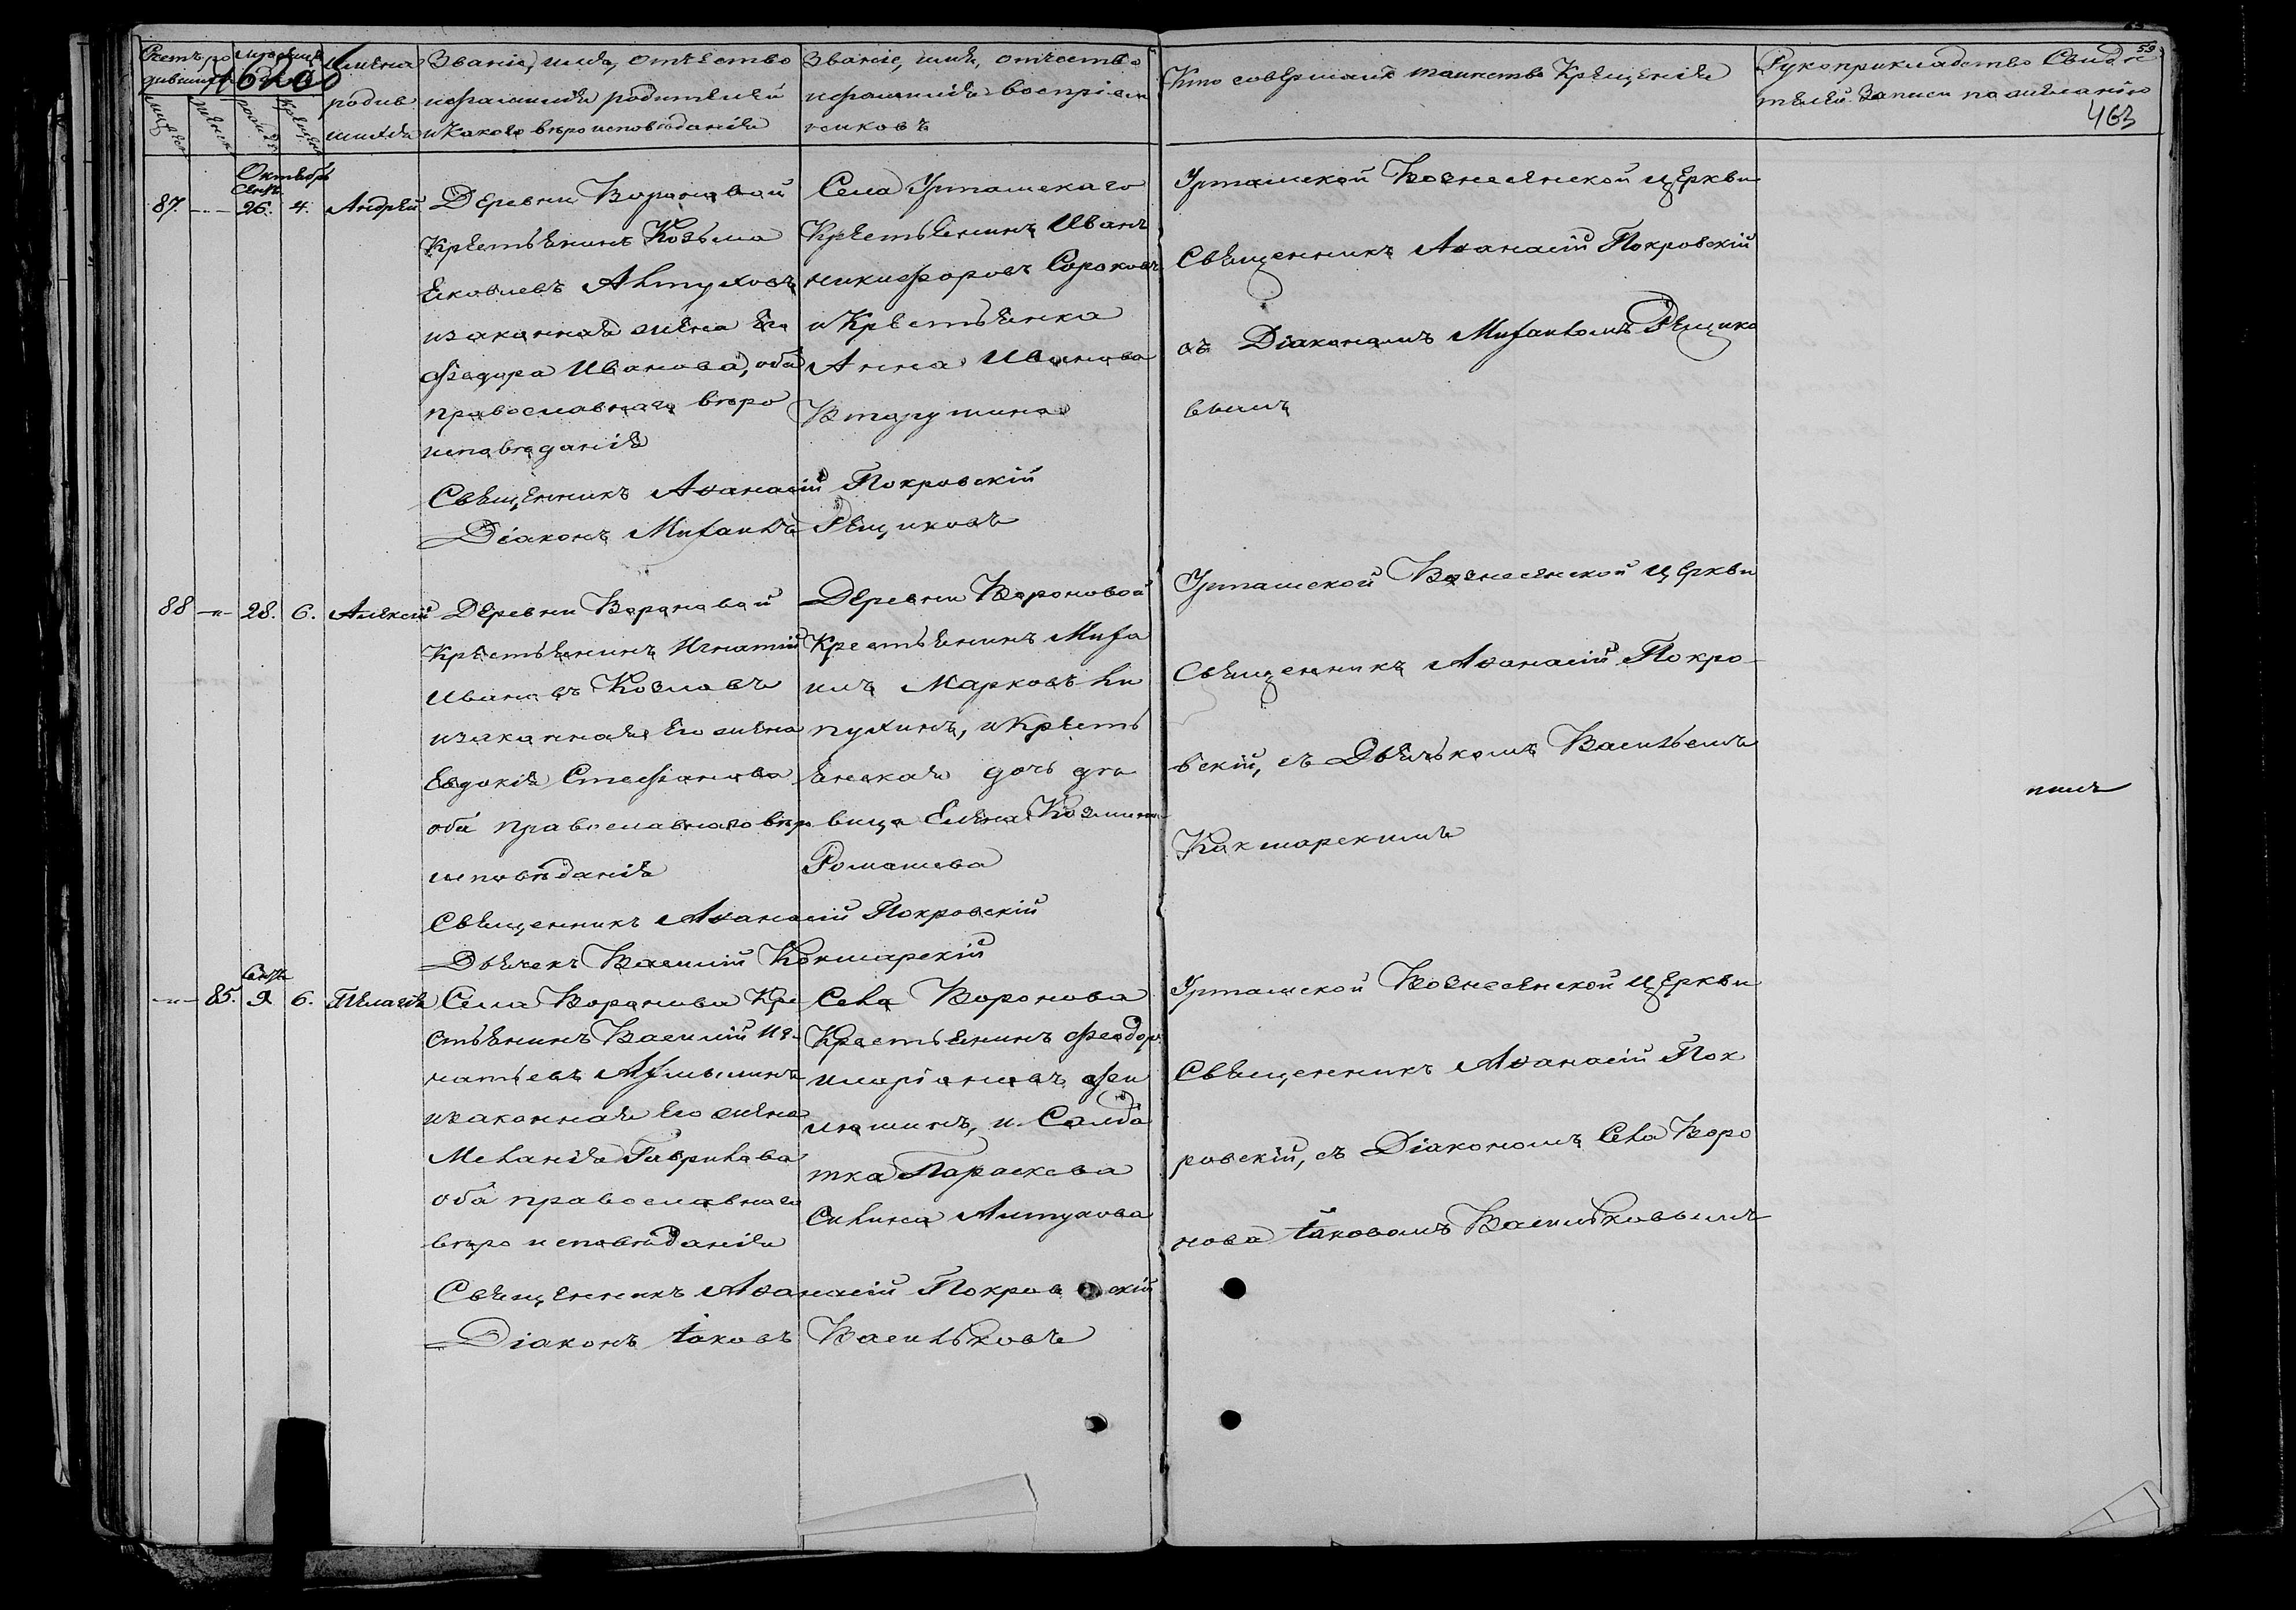 59
463
Счетъ ро
дившихся
Мужеск
Женск
рожден
Крещен
Имена
родив
шихся
Званіе, имя, отчество
и фамилія родителей
и какого вѣроисповѣданія
Званіе, имя, отчество
и фамилія воспріем
никовъ
Кто совершалъ таинство Крещенія
Рукоприкладство Свидѣ
телей записи по желанію
Октябрь
Сент.
87. -"- 26. 4. Андрей
Деревни Вороновой
Крестьянинъ Козьма
Яковлевъ Алтуховъ
и законная жена его
Федора Иванова, оба
православнаго вѣро
исповѣданія
Села Урташскаго
Крестьянинъ Иванъ
Никифоровъ Сороковъ
и Крестьянка
Анна Иванова
Втарушина
Урташской Вознесенской церкви
Священникъ Аѳанасій Покровскій
съ Діакономъ Михаиломъ Рещико
вымъ
Священникъ Аѳанасій Покровскій
Діаконъ Михаилъ Рещиковъ
88 -"- 28. 6. Алексій
Деревни Вороновой
Крестьянинъ Игнатій
Ивановъ Козловъ
и законная его жена
Евдокія Стефанова
оба православнаго вѣро
исповѣданія
Деревни Вороновой
Крестьянинъ Миха
илъ Марковъ Ли
пухинъ, и Кресть
янская дочь дѣ
вица Елена Козмина
Ромашева
Урташской Вознесенской церкви
Священникъ Аѳанасій Покро-
вскій, съ Дьячькомъ Васильемъ
Кокшарскимъ
Священникъ Аѳанасій Покровскій
Дьячекъ Василій Кокшарскій
Сент.
-"- 85. 9. 6. Пелагія
Села Воронова Кре
стьянинъ Василій Иг
натьевъ
и законная его жена
Меланія Гаврилова
оба православнаго
вѣро исповѣданія
Села Воронова
Крестьянинъ Феодоръ
Иларіоновъ Фи
люшинъ, и Солда
тка Параскева
Силина Алтухова
Урташской Вознесенской церкви
Священникъ Аѳанасій Пок
ровскій, съ Діакономъ Села Воро
нова Іаковомъ Васильковымъ
Священникъ Аѳанасій Покровскій
Діаконъ Іаковъ Васильковъ